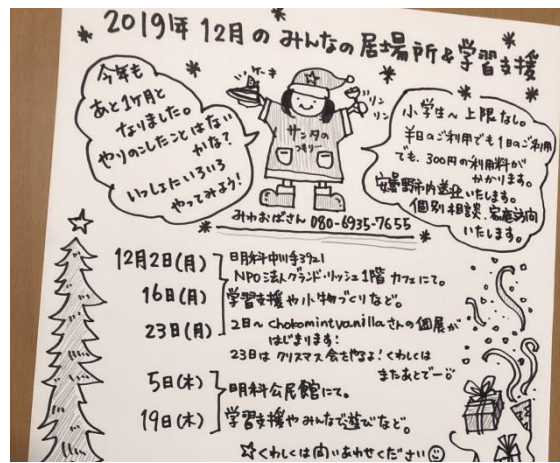 2019年12月の みんなの居場所&学習支援
今年も
あと1ヶ月と
なりました。
やりのこしたことはない
かな?
いっしょにいろいろ
やってみよう!
ケーキ
リン
リン
サンタの
つもり…
小学生〜上限なし。
半日のご利用でも1日のご利用
でも、300円の利用料が
かかります。
安曇野市内送迎いたします。
個別相談、家庭訪問
いたします。
みわおばさん 080-6935-7655
12月2日(月)
16日(月)
23日(月)
明科中川手3921
NPO法人グランド・リッシュ1階 カフェにて。
学習支援や小物づくりなど。
2日〜chokomintvanillaさんの個展が
はじまります!
23日は クリスマス会をやるよ!くわしくは
またあとでー
5日(木)
19日(木)
明科公民館にて。
学習支援やみんなで遊びなど。
☆くわしくは問いあわせください